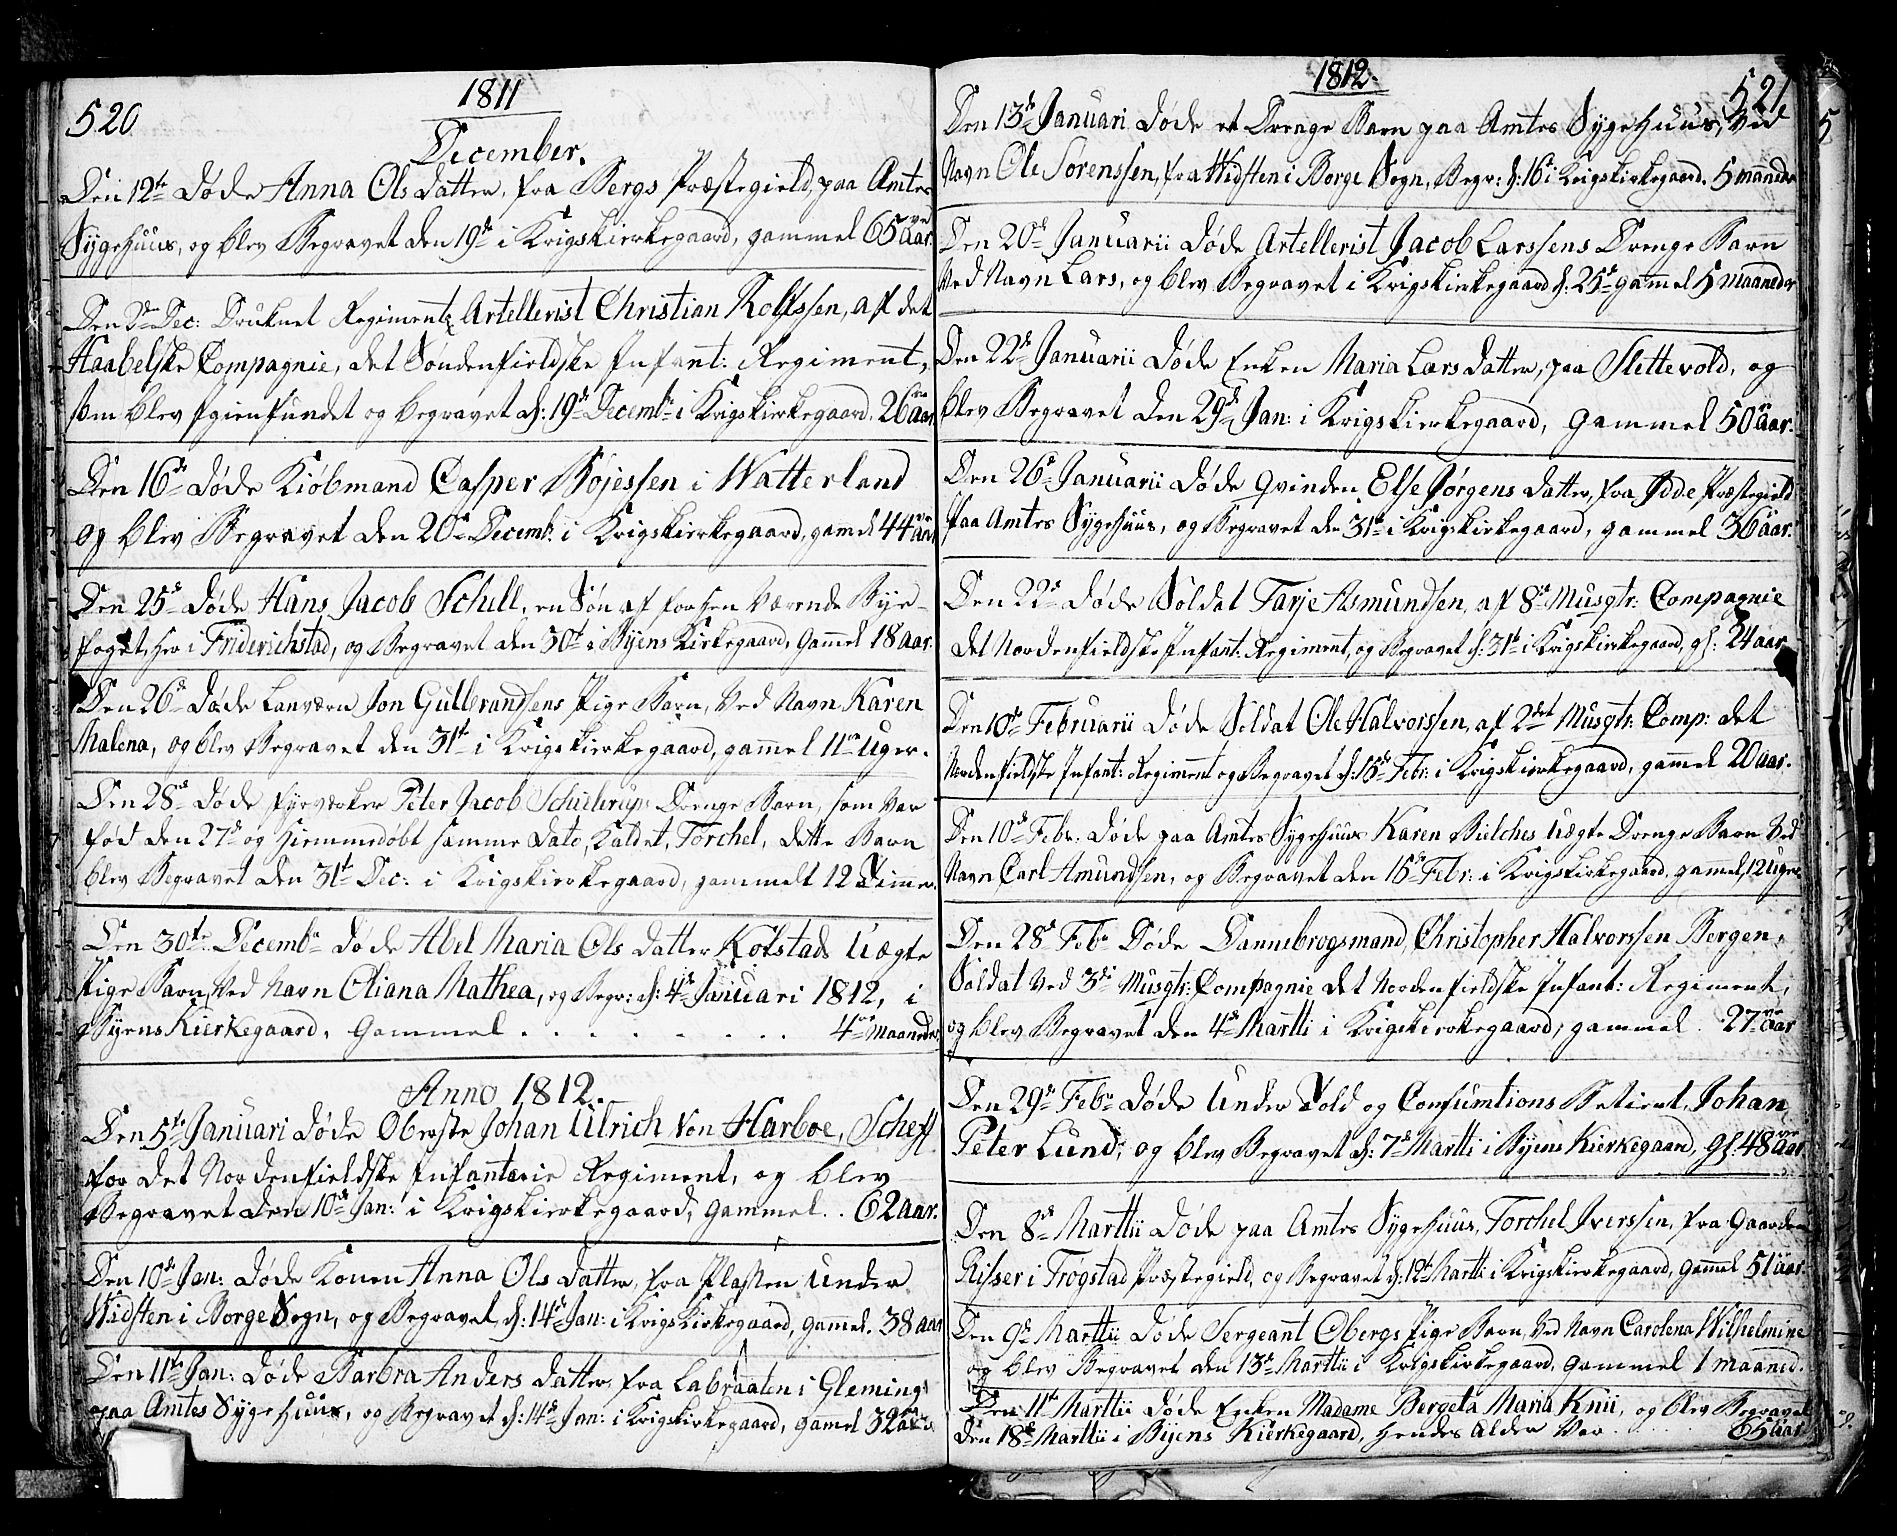 520
1811
December.
Den 12te Døde Anna Ols datter, fra Bergs Præstegield, paa Amtes
Sygehuus, og blev Begravet den 19de i Krigskierkegaard, gammel 65 aar.
Den Dec: Druknet Regiments Artellerist Christian Rolfssen, af det
Haabelske Compagnie, det Søndenfieldske Infant: Regiment,
som blev Igienfundet og begravet d: 19de Decembr i Krigskierkegaard. 26 aar
Den 16de Døde Kiøbmand Casper Bøjessen i Watterland
og blev Begravet den 20de Decemb: i Krigskierkegaard, gamel 44 aar
Den 25de Døde Hans Jacob Schull, en Søn af forhen Værende Bye-
foget, her i Friderichstad, og Begravet den 30te i Byens Kirkegaard, Gammel 18 aar.
Den 26de Døde Lanværn Jon Gulbrandsens Pige Barn, Ved Navn Karen
Malena, og blev Begravet den 31te i Krigskierkegaard, gammel 11 uger.
Den 28de Døde fyrverker Peter Jacob Schielerups Drenge Barn, som Var
fød den 27de og hiemmedøbt samme Dato, Kaldet, Torchel, dette Barn
blev Begravet den 31te Dec: i Krigskierkegaard, gammelt 12 Timer
Den 30te Decembr Døde Abel Maria Ols datter Kokstads Uægte
Pige Barn, Ved Navn Oliana Mathea, og Begr: d: 4de Januari 1812, i
Byens Kierkegaard, Gammel . . . . . . . 4re Maaneder.
Anno 1812.
Den 5te Januari Døde Oberste Johan Ulrich Von Harboe, Scheff
for det Nordenfieldske Infanterie Regiment, og blev
Begravet den 10de Jan: i Krigskierkegaard, Gammel . . 62 aar.
Den 10de Jan: Døde Konen Anna Ols datter, fra Pladsen Under
Widsten i Borge Sogn, og Begravet, d: 14de Jan: i Krigskierkegaard, gamel. 38 aar
Den 11te Jan: Døde Barbra Anders datter, fra Labraaten i Glemings
paa Amtes Sygehuus, og Begravet d: 14de Jan: i Krigskierkegaard, gamel 32 aar
1812.
521.
Den 13de Januari Døde et Drenge Barn paa Amtes Sygehuus, Ved
Navn Ole Sorenssen, fra Widsten i Borge Sogn, Begr: d: 16 i Krigskirkegaard. 5 maaneder
Den 20de Januarii Døde Artellerist Jacob Larssens Drenge Barn
Ved Navn Lars, og blev Begravet i Krigskierkegaard d: 25de gammel 5 maaneder
Den 22de Januarii Døde Enken Maria Lars datter, paa Slettevold, og
blev Begravet den 29de Jan: i Krigskierkegaard, gammel 50 aar.
Den 26de Januarii Døde Qvinden Else Jørgens datter, fra Idde Præstegield
paa Amtes Sygehuus, og Begravet den 31te i Krigskierkegaard, gammel 36 aar.
Den 22de Døde Soldat Tarje Asmundsen, af 8de Musqtr: Compagnie
det Nordenfieldske Infant: Regiment, og Begravet d: 31te i Krigskierkegaard, gl: 24 aar
Den 10de Februarii Døde Soldat Ole Halvorssen, af 2det Musqtr: Comp: det
Nordenfieldske Infant: Regiment og Begravet d: 15de Febr: i Krigskierkegaard, gammel 20 aar.
Den 10de Febr. Døde paa Amtes Sygehuus Karen Bielches Uægte Drenge Barn Ved
Navn Carl Amundsen, og Begravet den 16de Febr: i Krigskirkegaard, gammel, 12 uger
Den 28de Febr Døde Dannebrogsmand, Christopher Halvorssen Bergen,
Soldat Ved 3die Musqtr: Compagnie det Nordenfieldske Infant: Regiment,
og blev Begravet den 4de Martti i Krigskierkegaard, gammel . 27 aar
Den 29de Febr Døde Under Told og Consumtions Betient, Johan
Peter Lund, og blev Begravet d: 7de Martti i Byens Kierkegaard, gl: 48 aar
Den 8de Marttii Døde paa Amtes Sygehuus, Torchel Iverssen, fra Gaarden
Risser i Trøgstad Præstegield, og Begravet d: 12te Martti i Krigskierkegaard, Gammel 51 aar.
Den 9de Marttii Døde Sergeant Obergs Pige Barn, Ved Navn Carolena Wilhelmine
og blev Begravet den 13de Marttii i Krigskirkegaard, Gammel 1 maaned.
Den 11te Marttii Døde Enken Madame Bergeta Maria Knii, og blev Begravet
Den 18de Marttii i Byens Kierkegaard, hendes alder Var . . . . . 65 aar.